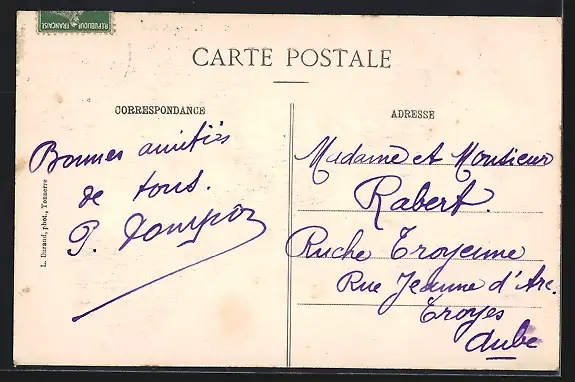 REPUBLIQUE FRANÇAISE
CARTE POSTALE
CORRESPONDANCE
Bonnes amitiés
de tous.
P.
L. Durand, phot., Tonnerre
ADRESSE
Madame et Monsieur
Rabert.
Ruche Troyenne
Rue Jeanne d'Arc.
Troyes
Aube